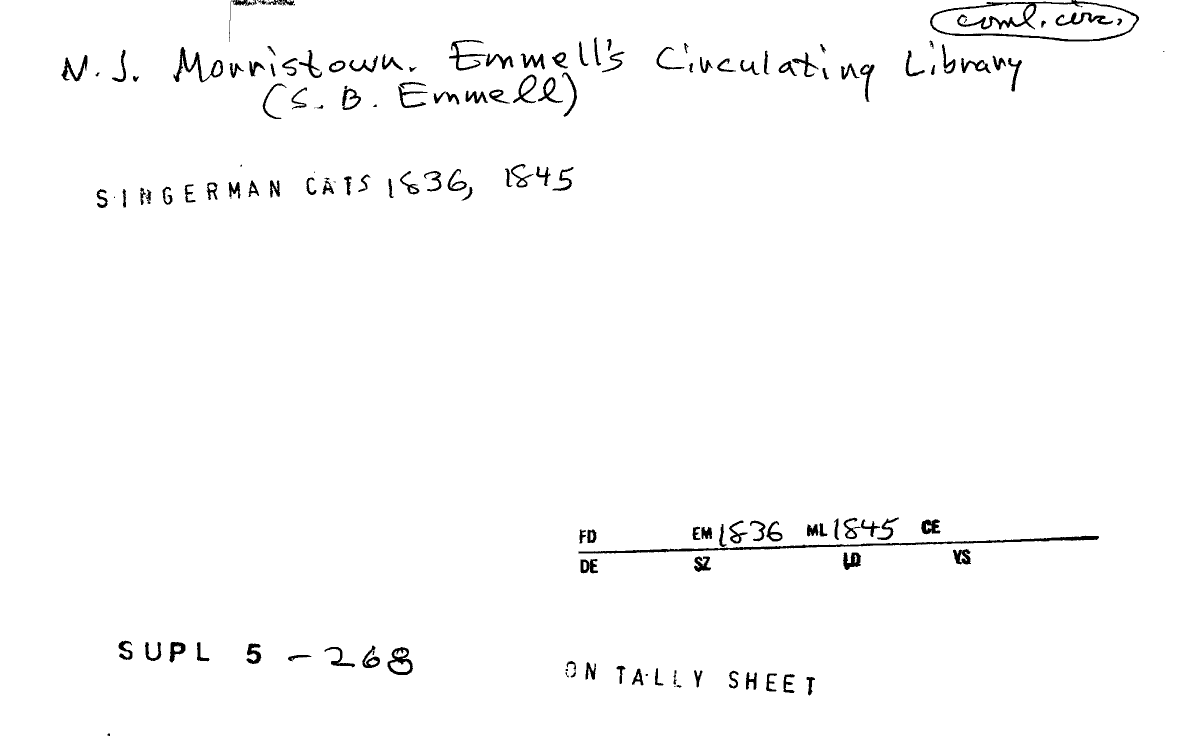 coml. circ.
N. J. Morristown. Emmell's Circulating Library
(S. B. Emmell)
SINGERMAN CATS 1836, 1845
FD EM 1836 ML 1845 CE
DE SZ LD VS
SUPL 5 - 268
ON TALLY SHEET